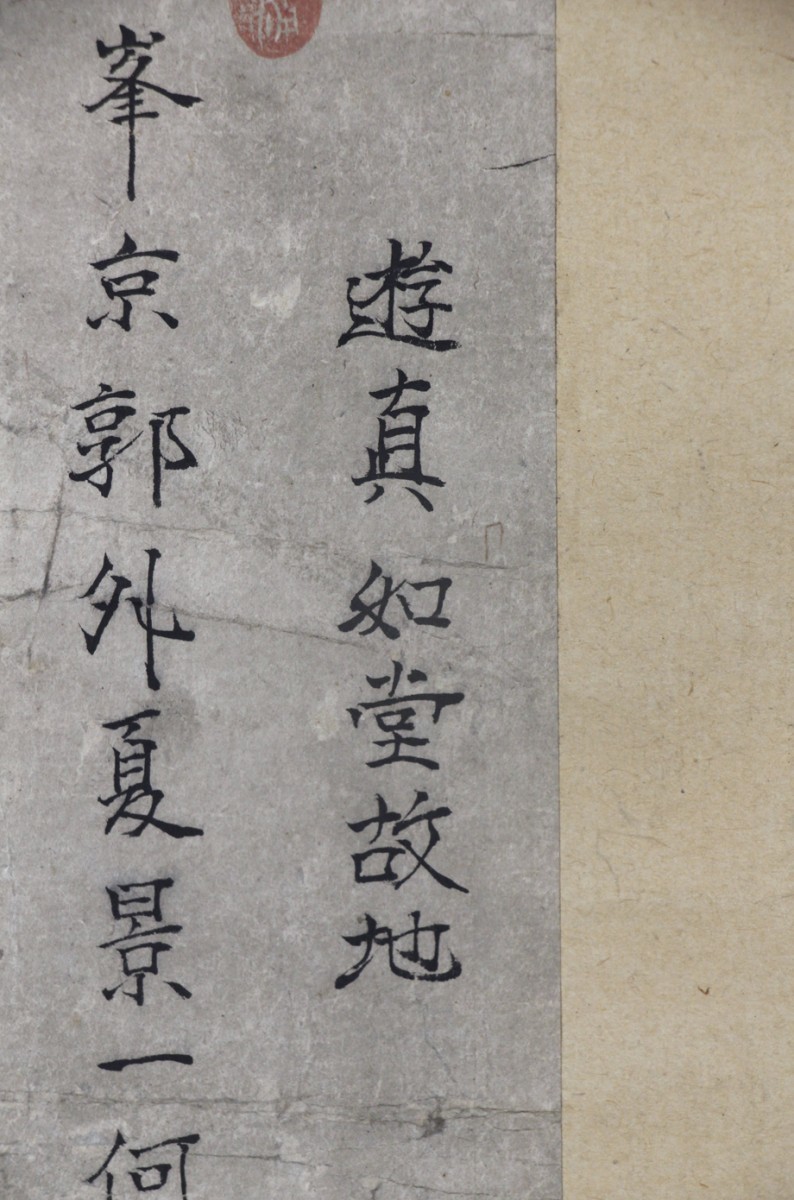 遊真如堂故地
峯京郭外夏景一何